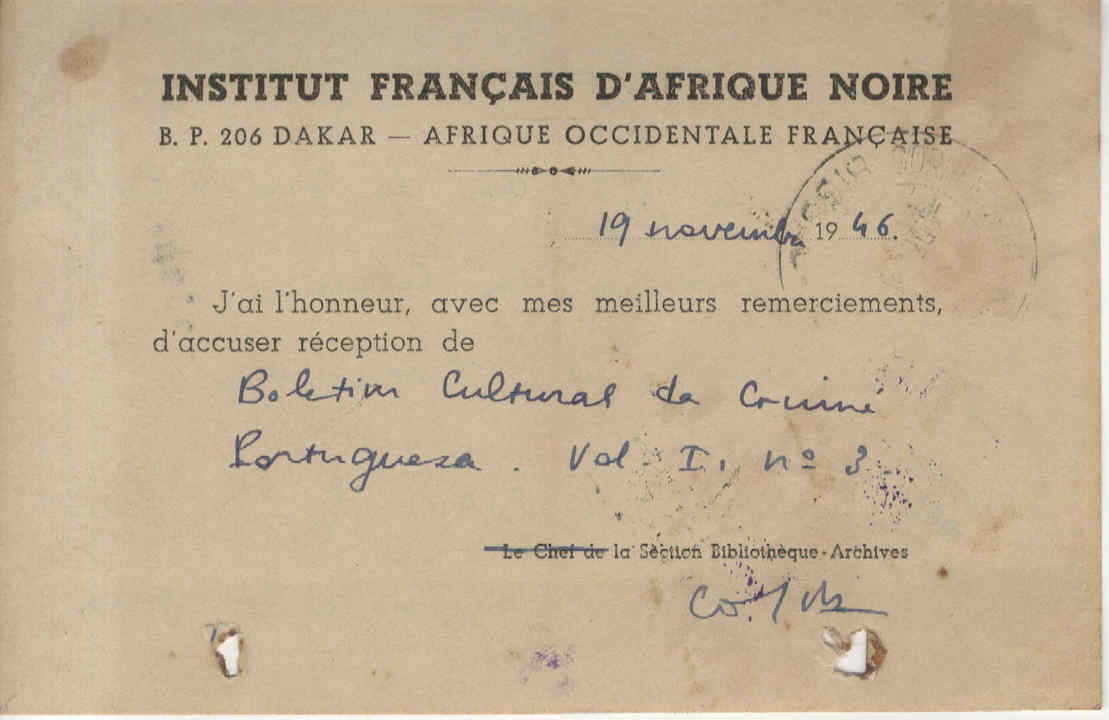 INSTITUT FRANÇAIS D'AFRIQUE NOIRE
B. P. 206 DAKAR — AFRIQUE OCCIDENTALE FRANÇAISE
19 novembre 1946.
J'ai l'honneur, avec mes meilleurs remerciements,
d'accuser réception de
Boletim Cultural da Guiné
Portuguesa. Vol. I, nº 3
Le Chef de la Section Bibliothèque-Archives